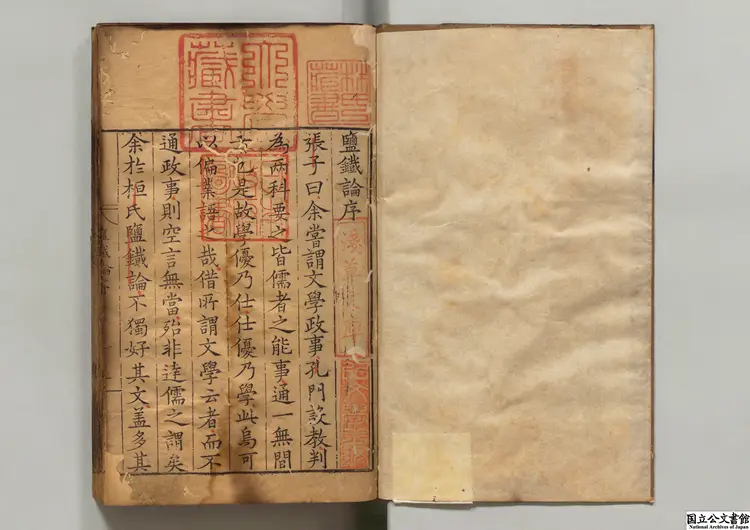 鹽鐵論序
張子曰余嘗謂文學政事孔門設教判
為兩科要之皆儒者之能事通一無間
已是故學優乃仕仕優乃學此烏可
以偏業語之哉借所謂文學云者而不
通政事則空言無當殆非達儒之謂矣
余於桓氏鹽鐵論不獨好其文蓋多其
林氏藏書
藏書
国立公文書館
National Archives of Japan